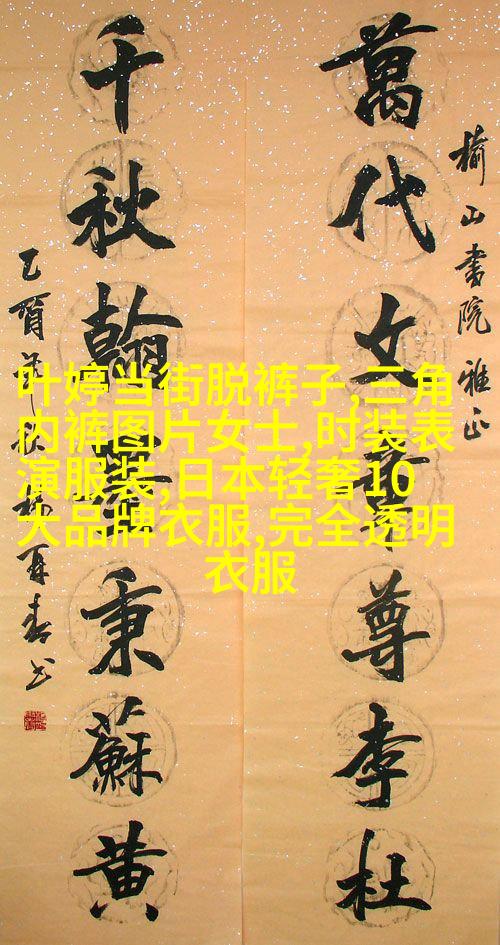 榆山書院雅正
萬代文章尊李杜
千秋翰秉蘇黄
叶婷当街脱裤子,三角
内裤图片女士,时装表
演服装,日本轻奢10
大品牌衣服,完全透明
衣服